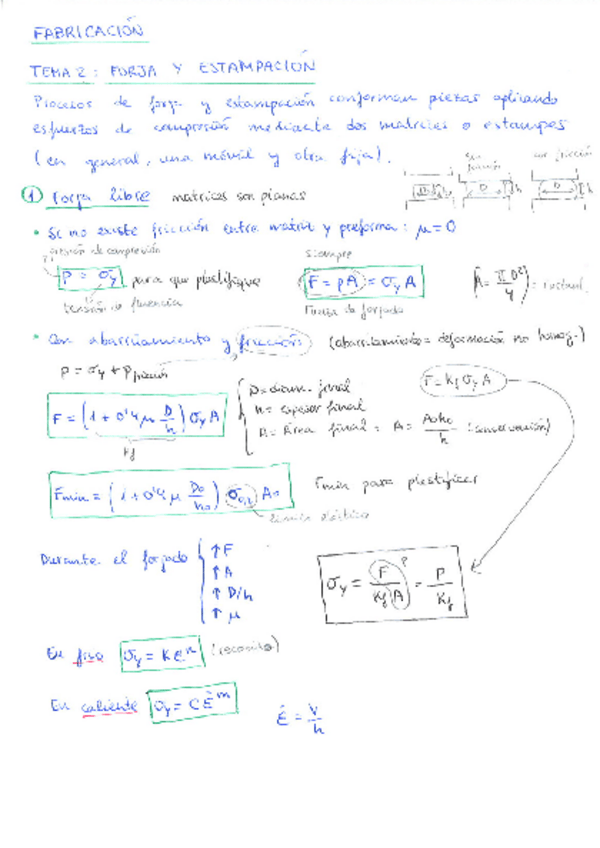 FABRICACIÓN
TEMA 2: FORJA Y ESTAMPACIÓN
Procesos de forja y estampación conforman piezas aplicando
esfuerzos de compresión mediante dos matrices o estampes
(en general, una móvil y otra fija).
sin fricción
con fricción
D h
D h
D h
① Forja libre matrices son planas
• Si no existe fricción entre matriz y preforma: μ=0
presión de compresión
siempre
P = σy para que plastifique
F = pA = σy A
A = πD²/4
tensión de fluencia
Fuerza de forjado
• Con abarrilamiento y fricción: (abarrilamiento = deformación no homog.)
p = σy + Pfricción
F = (1 + 0'4 μ D/h) σy A
kf
D = diám. final
h = espesor final
A = Área final = A = A₀h₀/h (conservación)
F = Kf σy A
Fmin = (1 + 0'4 μ D₀/h₀) σ0,2 A₀
Fmin para plastificar
límite elástico
Durante el forjado
↑ F
↑ A
↑ D/h
↑ μ
σy = F/(Kf A) = P/Kf
?
En frío σy = K εⁿ (recocido)
En caliente σy = C ε̇ᵐ
ε̇ = V/h